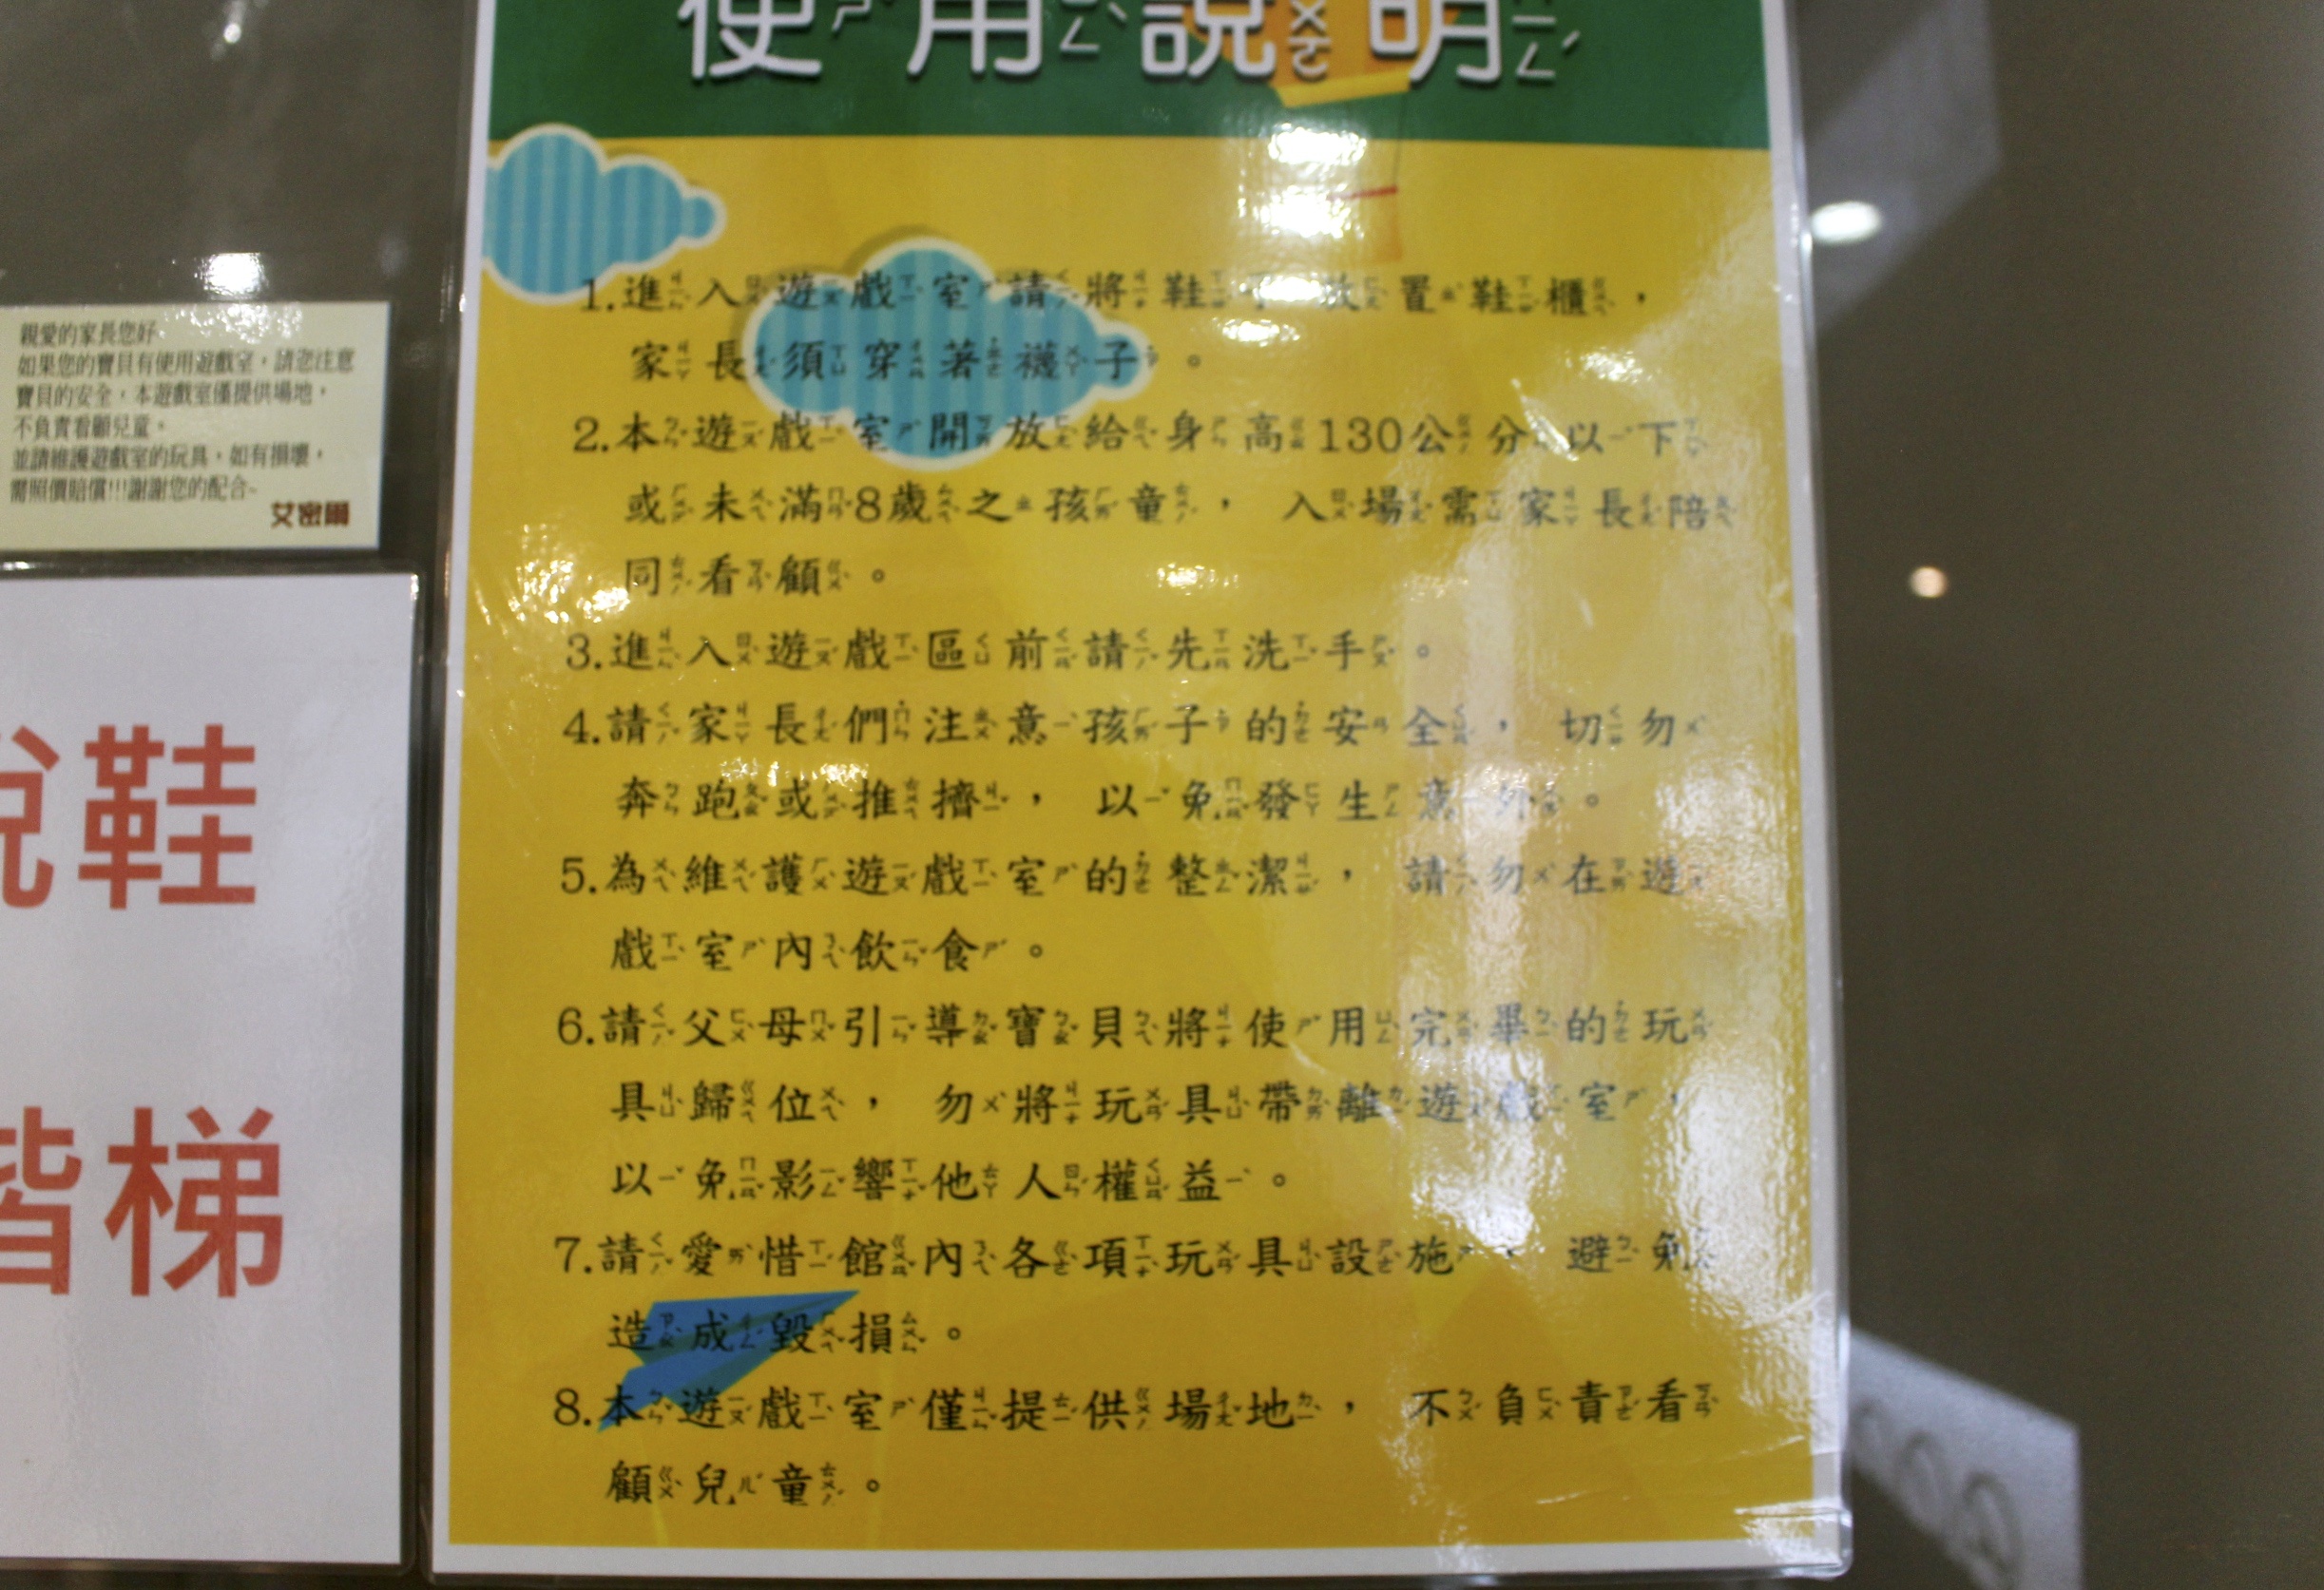 使用說明
1.進入遊戲室請將鞋子放置鞋櫃，
家長須穿著襪子。
2.本遊戲室開放給身高130公分以下
或未滿8歲之孩童，入場需家長陪
同看顧。
3.進入遊戲區前請先洗手。
4.請家長們注意孩子的安全，切勿
奔跑或推擠，以免發生意外。
5.為維護遊戲室的整潔，請勿在遊
戲室內飲食。
6.請父母引導寶貝將使用完畢的玩
具歸位，勿將玩具帶離遊戲室，
以免影響他人權益。
7.請愛惜館內各項玩具設施，避免
造成毀損。
8.本遊戲室僅提供場地，不負責看
顧兒童。
親愛的家長您好~
如果您的寶貝有使用遊戲室，請您注意
寶貝的安全，本遊戲室僅提供場地，
不負責看顧兒童。
並請維護遊戲室的玩具，如有損壞，
需照價賠償!!!謝謝您的配合~
艾密爾
鞋
梯